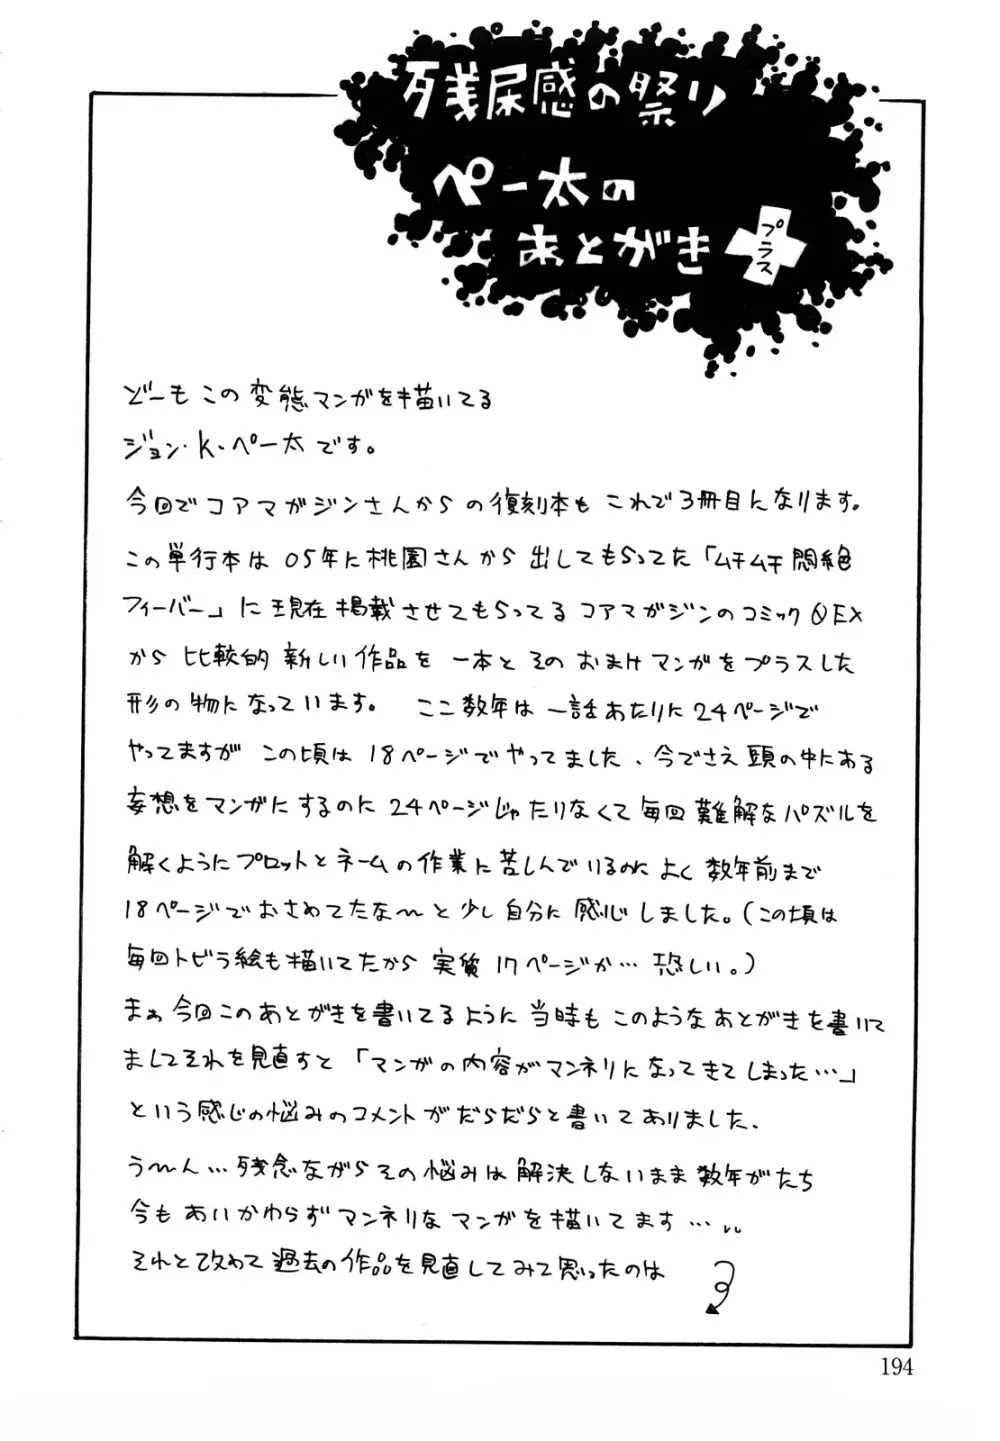 残尿感の祭り
ペー太の
あとがき
プラス
どーもこの変態マンガを描いてる
ジョン・K・ペー太です。
今回でコアマガジンさんからの復刻本もこれで3冊目になります。
この単行本は05年に桃園さんから出してもらってた「ムチムチ悶絶
フィーバー」に現在掲載させてもらってるコアマガジンのコミックΦEX
から比較的新しい作品を一本とそのおまけマンガをプラスした
形の物になっています。ここ数年は一話あたりに24ページで
やってますがこの頃は18ページでやってました、今でさえ頭の中にある
妄想をマンガにするのに24ページじゃたりなくて毎回難解なパズルを
解くようにプロットとネームの作業に苦しんでいるのによく数年前まで
18ページでおさめてたな〜と少し自分に感心しました。(この頃は
毎回トビラ絵も描いてたから実質17ページか…恐しい。)
まぁ今回このあとがきを書いてるように当時もこのようなあとがきを書いて
ましてそれを見直すと「マンガの内容がマンネリになってきてしまった…」
という感じの悩みのコメントがだらだらと書いてありました、
う〜ん…残念ながらその悩みは解決しないまま数年がたち
今もあいかわらずマンネリなマンガを描いてます…
それと改めて過去の作品を見直してみて思ったのは
194